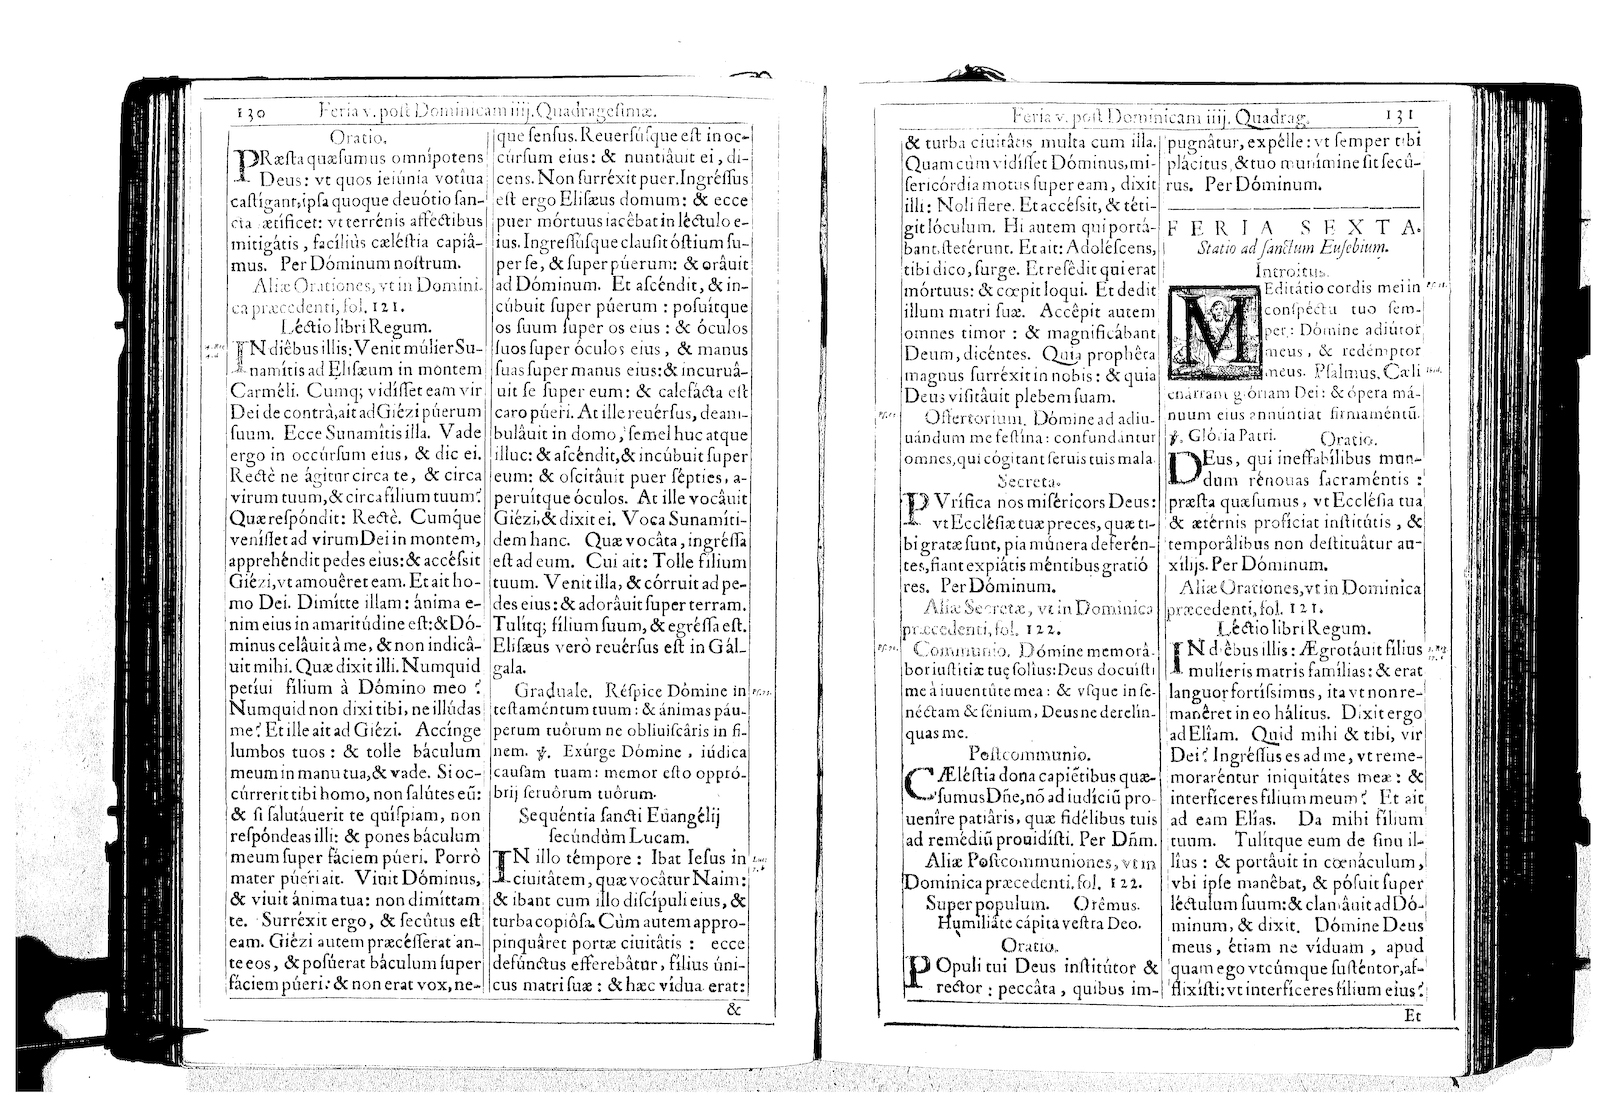 130 Feria v. poſt Dominicam iiij. Quadrageſimæ.
Oratio.
PRæſta quæſumus omnípotens
Deus: vt quos ieiúnia votíua
caſtígant, ipſa quoque deuótio ſan-
cta lætíficet: vt terrénis afféctibus
mitigâtis, faciliùs cæléſtia capiâ-
mus. Per Dóminum noſtrum.
Aliæ Orationes, vt in Domini-
ca præcedenti, fol. 121.
Léctio libri Regum.
IN diêbus illis; Venit múlier Su-
namîtis ad Eliſæum in montem
Carméli. Cumq; vidíſſet eam vir
Dei de contrà, ait ad Giézi púerum
ſuum. Ecce Sunamîtis illa. Vade
ergo in occúrſum eius, & dic ei.
Rectè ne ágitur circa te, & circa
virum tuum, & circa fílium tuum?
Quæ reſpóndit: Rectè. Cumque
veníſſet ad virum Dei in montem,
apprehéndit pedes eius: & accéſsit
Giézi, vt amouêret eam. Et ait ho-
mo Dei. Dimítte illam: ánima e-
nim eius in amaritúdine eſt: & Dó-
minus celâuit à me, & non indicâ-
uit mihi. Quæ dixit illi. Numquid
petíui fílium à Dómino meo?
Numquid non dixi tibi, ne illúdas
me? Et ille ait ad Giézi. Accínge
lumbos tuos: & tolle báculum
meum in manu tua, & vade. Si oc-
cúrrerit tibi homo, non ſalútes eū:
& ſi ſalutáuerit te quíſpiam, non
reſpóndeas illi: & pones báculum
meum ſuper fáciem púeri. Porrò
mater púeri ait. Viuit Dóminus,
& viuit ánima tua: non dimíttam
te. Surréxit ergo, & ſecûtus eſt
eam. Giézi autem præcéſſerat an-
te eos, & poſúerat báculum ſuper
fáciem púeri: & non erat vox, ne-
que ſenſus. Reuerſúſque eſt in oc-
cúrſum eius: & nuntiâuit ei, di-
cens. Non ſurréxit puer. Ingréſſus
eſt ergo Eliſæus domum: & ecce
puer mórtuus iacêbat in léctulo e-
ius. Ingreſſúſque clauſit óſtium ſu-
per ſe, & ſuper púerum: & orâuit
ad Dóminum. Et aſcéndit, & in-
cúbuit ſuper púerum: poſuítque
os ſuum ſuper os eius: & óculos
ſuos ſuper óculos eius, & manus
ſuas ſuper manus eius: & incuruâ-
uit ſe ſuper eum: & calefácta eſt
caro púeri. At ille reuérſus, deam-
bulâuit in domo, ſemel huc atque
illuc: & aſcéndit, & incúbuit ſuper
eum: & oſcitâuit puer ſépties, a-
peruítque óculos. At ille vocâuit
Giézi, & dixit ei. Voca Sunamíti-
dem hanc. Quæ vocâta, ingréſſa
eſt ad eum. Cui ait: Tolle fílium
tuum. Venit illa, & córruit ad pe-
des eius: & adorâuit ſuper terram.
Tulítq; fílium ſuum, & egréſſa eſt.
Eliſæus verò reuérſus eſt in Gál-
gala.
Graduale. Réſpice Dómine in
teſtaméntum tuum: & ánimas páu-
perum tuôrum ne obliuiſcâris in fi-
nem. ℣. Exúrge Dómine, iúdica
cauſam tuam: memor eſto oppró-
brij ſeruôrum tuôrum.
Sequéntia ſancti Euangélij
ſecúndùm Lucam.
IN illo témpore: Ibat Ieſus in
ciuitâtem, quæ vocâtur Naim:
& ibant cum illo diſcípuli eius, &
turba copiôſa. Cùm autem appro-
pinquâret portæ ciuitâtis: ecce
defúnctus efferebâtur, fílius úni-
cus matri ſuæ: & hæc vídua erat:
&
Feria v. poſt Dominicam iiij. Quadrag. 131
& turba ciuitâtis multa cum illa.
Quam cùm vidíſſet Dóminus, mi-
ſericórdia motus ſuper eam, dixit
illi: Noli flere. Et accéſsit, & téti-
git lóculum. Hi autem qui portâ-
bant, ſtetérunt. Et ait: Adoléſcens,
tibi dico, ſurge. Et reſêdit qui erat
mórtuus: & cœpit loqui. Et dedit
illum matri ſuæ. Accêpit autem
omnes timor: & magnificâbant
Deum, dicéntes. Quia prophêta
magnus ſurréxit in nobis: & quia
Deus viſitâuit plebem ſuam.
Offertorium. Dómine ad adiu-
uándum me feſtína: confundántur
omnes, qui cógitant ſeruis tuis mala.
Secreta.
PVrífica nos miſéricors Deus:
vt Eccléſiæ tuæ preces, quæ ti-
bi gratæ ſunt, pia múnera deferén-
tes, fiant expiátis méntibus gratió
res. Per Dóminum.
Aliæ Secretæ, vt in Dominica
præcedenti, fol. 122.
Communio. Dómine memorâ-
bor iuſtítiæ tuę ſolíus: Deus docuíſti
me à iuuentûte mea: & vſque in ſe-
néctam & ſénium, Deus ne derelín-
quas me.
Poſtcommunio.
CÆléſtia dona capiétibus quæ-
ſumus Dñe, nō ad iudíciū pro-
uenîre patiâris, quæ fidélibus tuis
ad remédiū prouidíſti. Per Dñm.
Aliæ Poſtcommuniones, vt in
Dominica præcedenti. fol. 122.
Super populum. Orêmus.
Humiliâte cápita veſtra Deo.
Oratio.
POpuli tui Deus inſtitútor &
rector: peccâta, quibus im-
pugnâtur, expélle: vt ſemper tibi
plácitus, & tuo munímine ſit ſecû-
rus. Per Dóminum.
FERIA SEXTA.
Statio ad ſanctum Euſebium.
Introitus.
MEditátio cordis mei in
conſpéctu tuo ſem-
per: Dómine adiútor
meus, & redémptor
meus. Pſalmus. Cæli
enárrant glóriam Dei: & ópera má-
nuum eius annúntiat firmaméntū.
℣. Glória Patri. Oratio.
DEus, qui ineffabílibus mun-
dum rénouas ſacraméntis:
præſta quæſumus, vt Eccléſia tua
& ætérnis profíciat inſtitútis, &
temporâlibus non deſtituâtur au-
xílijs. Per Dóminum.
Aliæ Orationes, vt in Dominica
præcedenti, fol. 121.
Léctio libri Regum.
IN diêbus illis: Ægrotâuit fílius
mulíeris matris famílias: & erat
languor fortíſsimus, ita vt non re-
manêret in eo hálitus. Dixit ergo
ad Elîam. Quid mihi & tibi, vir
Dei? Ingréſſus es ad me, vt reme-
moraréntur iniquitátes meæ: &
interfíceres fílium meum? Et ait
ad eam Elías. Da mihi fílium
tuum. Tulítque eum de ſinu il-
lîus: & portâuit in cœnáculum,
vbi ipſe manêbat, & póſuit ſuper
léctulum ſuum: & clamâuit ad Dó-
minum, & dixit. Dómine Deus
meus, étiam ne víduam, apud
quam ego vtcúmque ſuſténtor, af-
flixíſti: vt interfíceres fílium eius?
Et